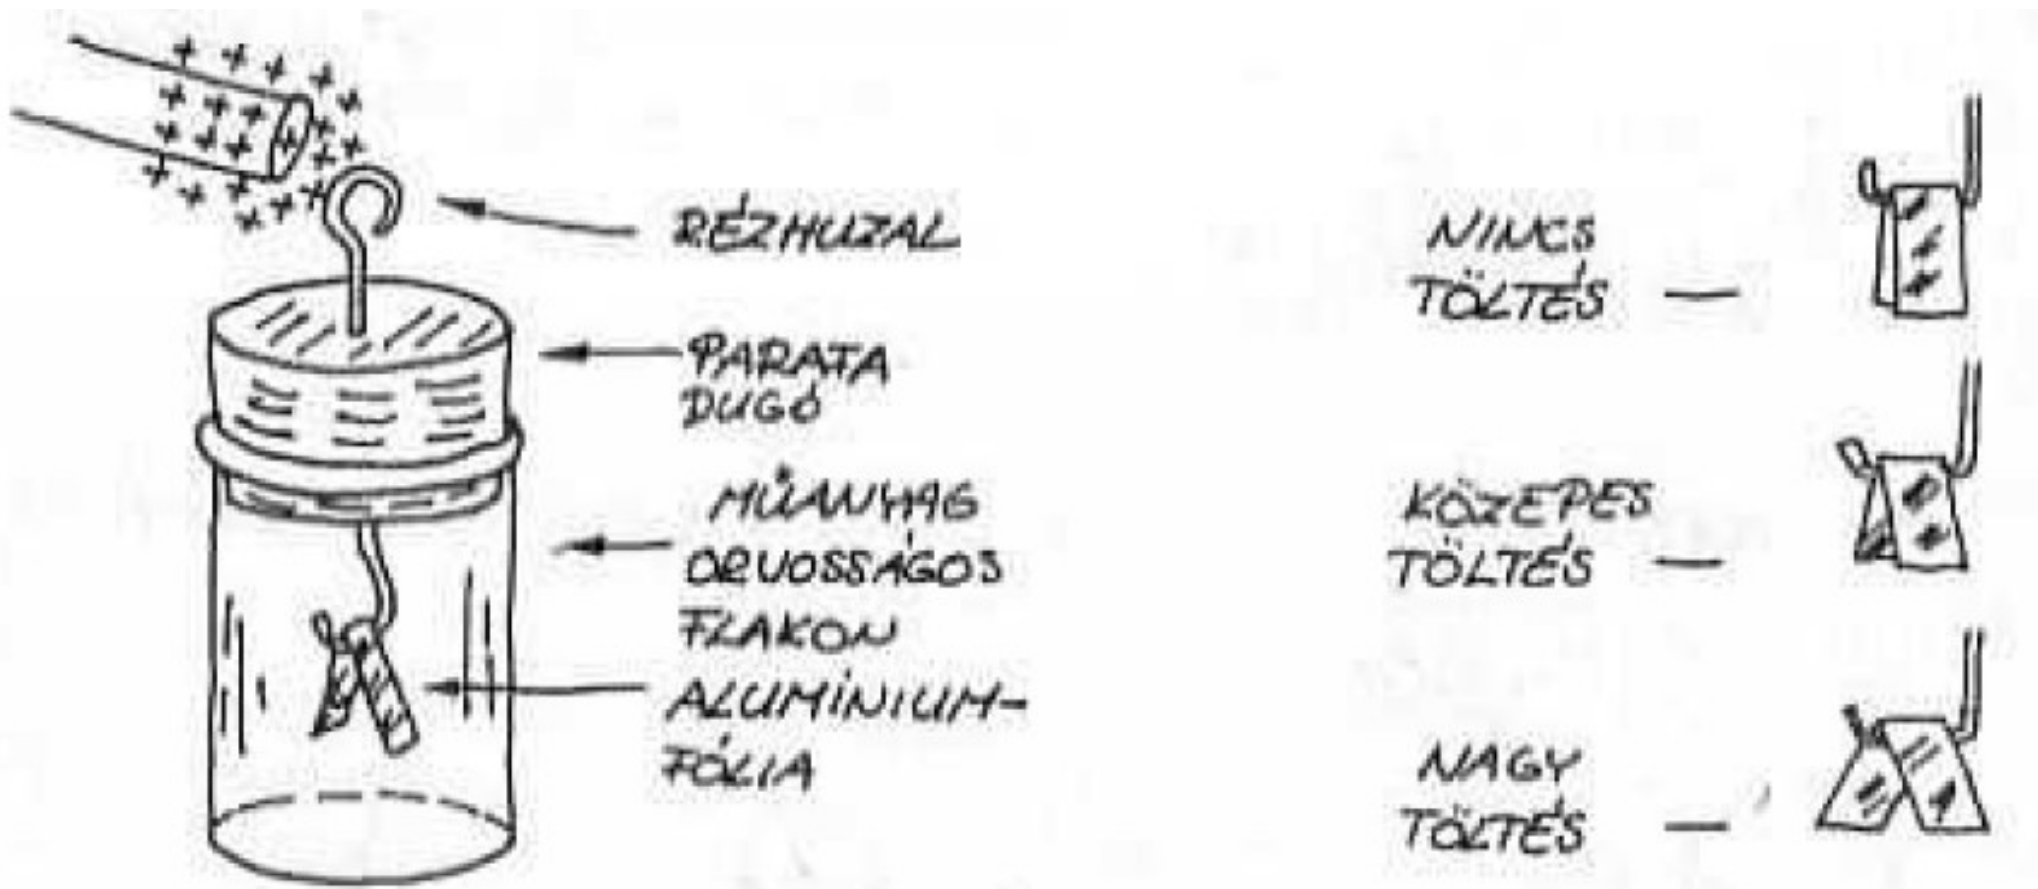 RÉZHUZAL
PARAFA
DUGÓ
MŰANYAG
ORVOSSÁGOS
FLAKON
ALUMÍNIUM-
FÓLIA
NINCS
TÖLTÉS
KÖZEPES
TÖLTÉS
NAGY
TÖLTÉS